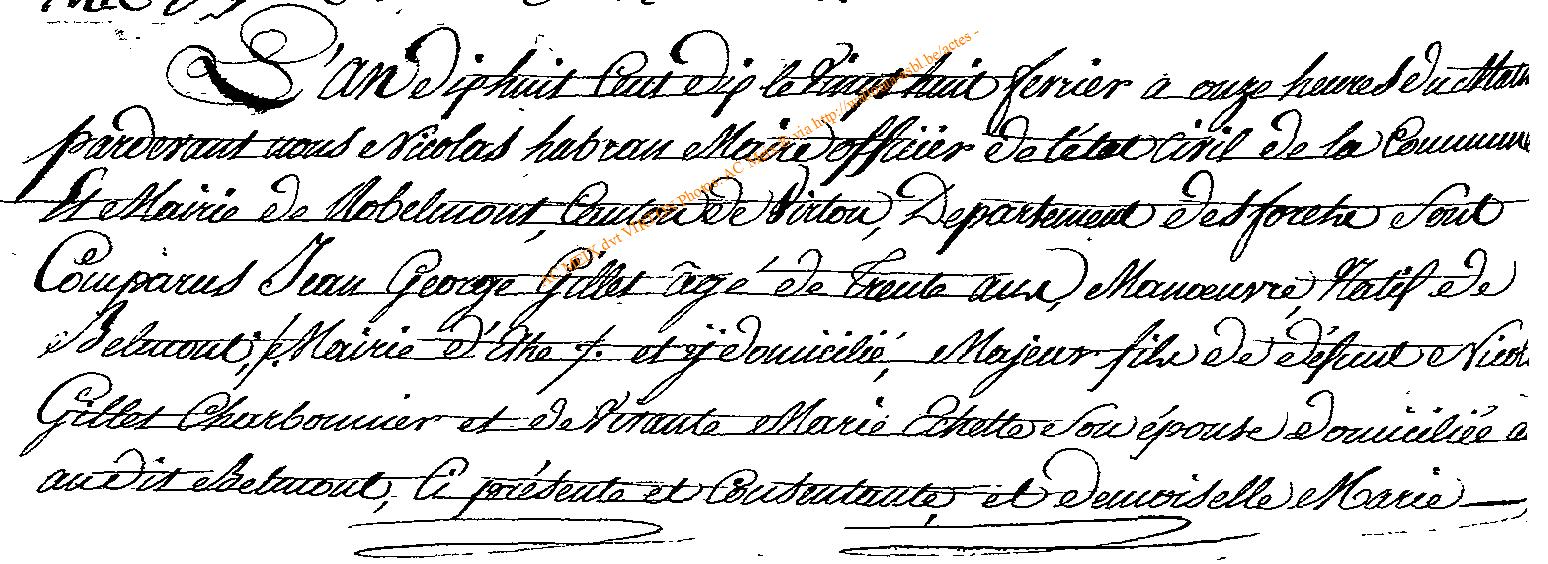 L'an diphuit Cent dip le Vingt huit fevrier a onze heures du Matin
pardevant nous Nicolas habran Maire officier de l'état civil de la Commune
Et Mairie de Robelmont, Canton de Virton, Departement des forets Sont
Comparus Jean George Gillet âgé de Trente ans, Manoeuvre, Natif de
Belmont, /. Mairie d'Ethe /. et ÿ domicilié, Majeur fils de défunt Nicolas
Gillet Charbonnier et de Vivante Marie Ethette Son épouse domiciliée a
au dit Belmont, Ci présente et Consentante, et demoiselle Marie